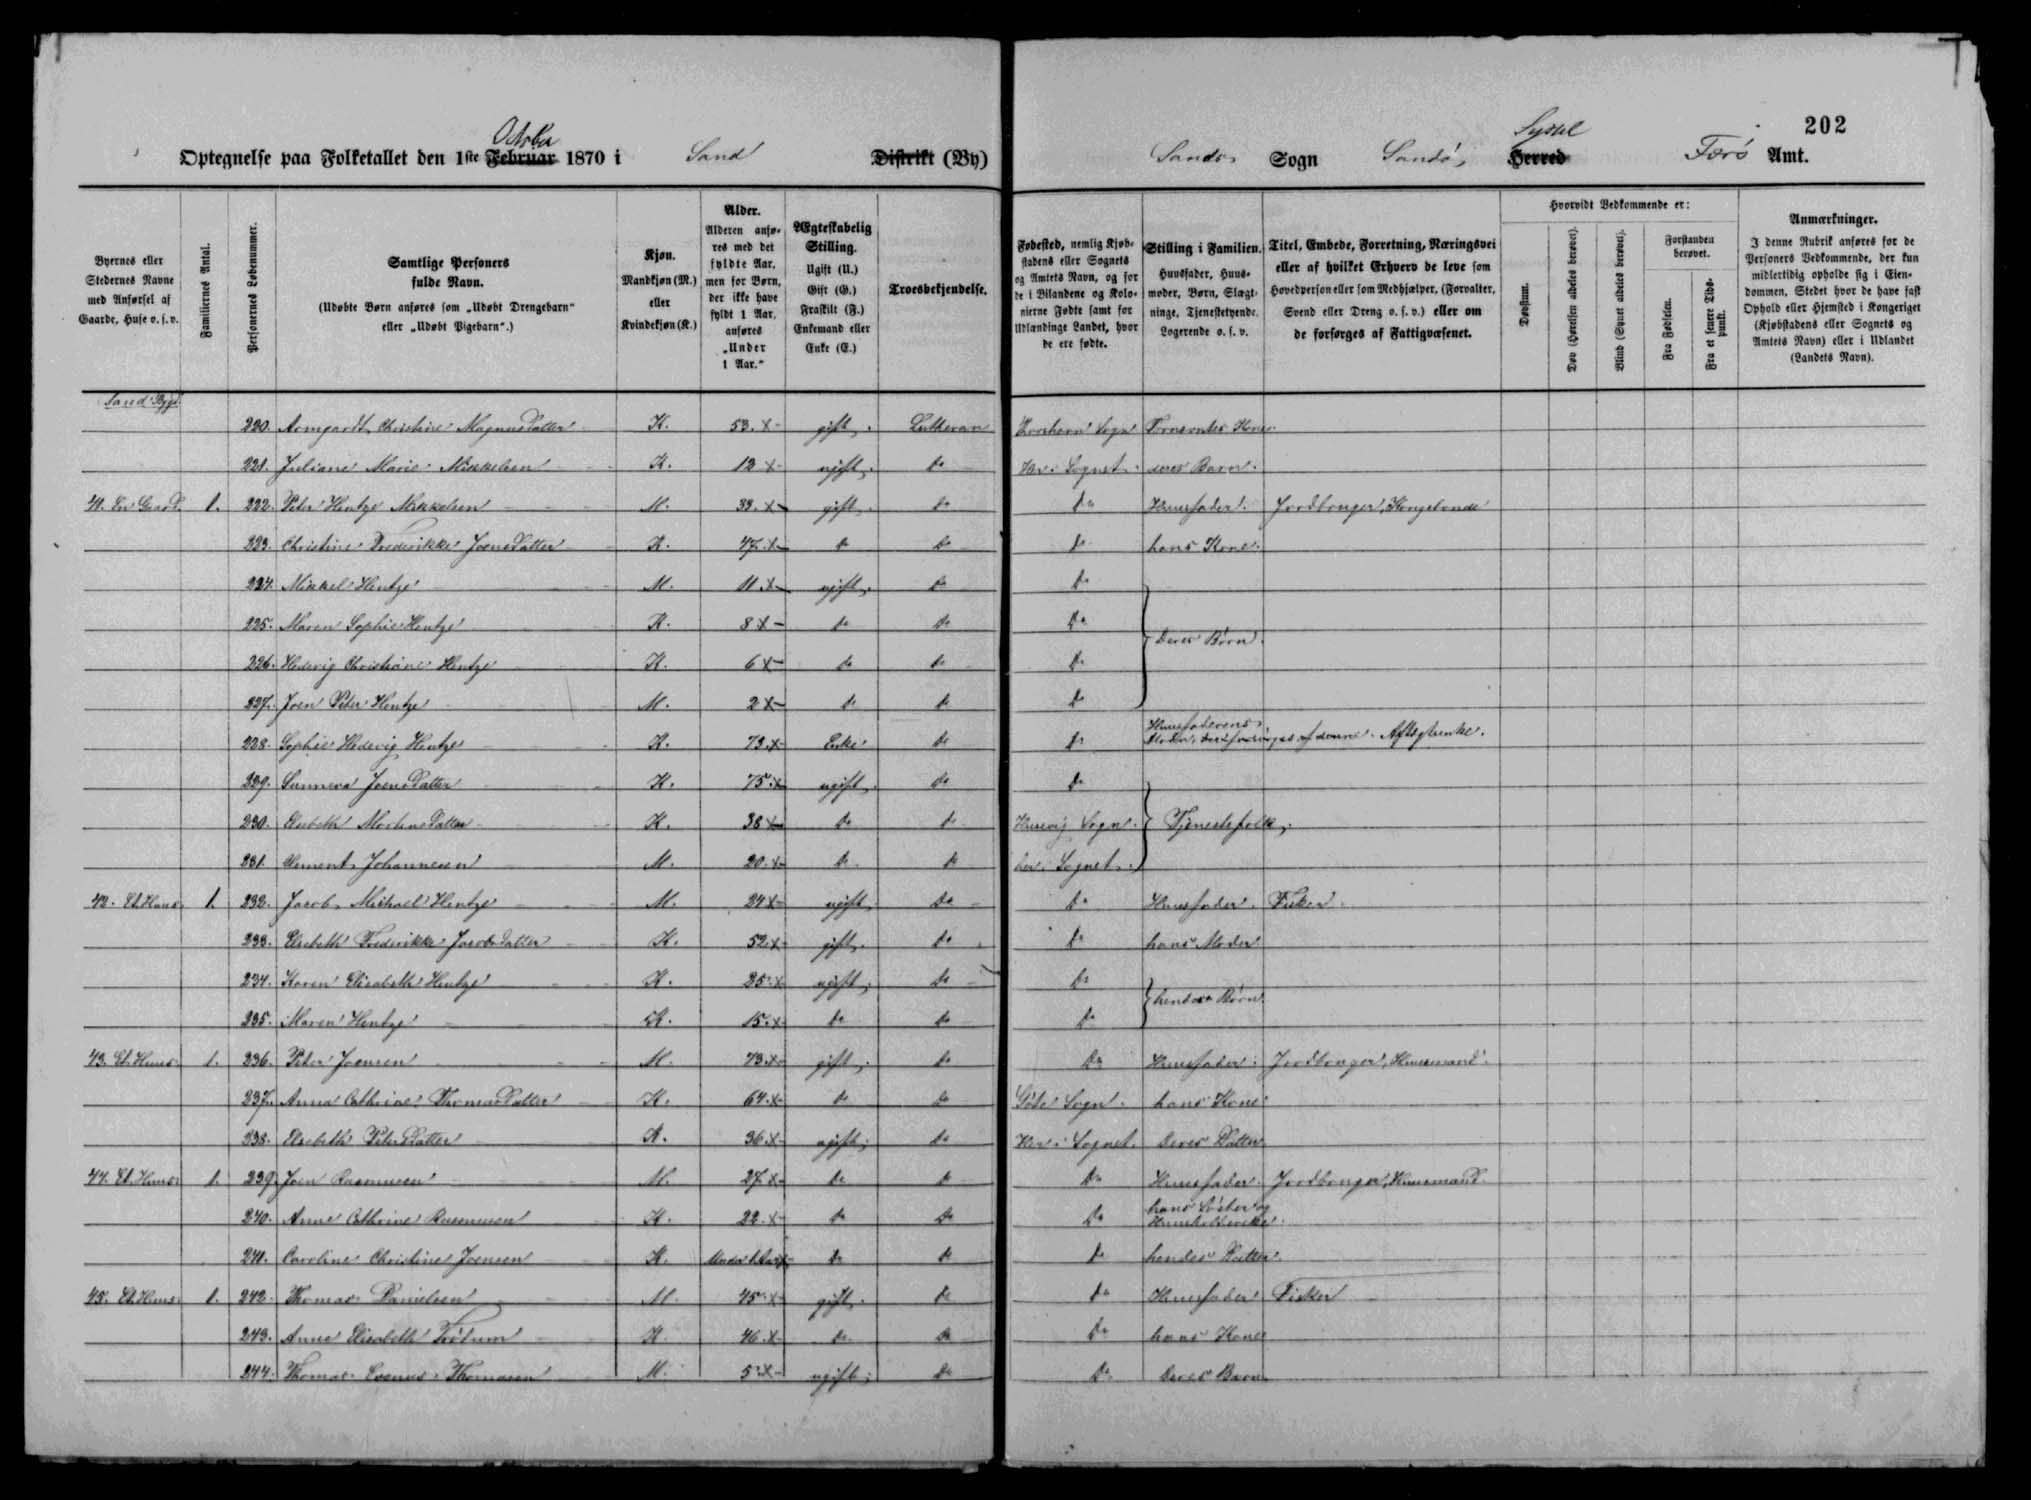 202
Optegnelse paa Folketallet den 1ste Februar October 1870 i Sand Distrikt (By)
Sands Sogn Sandø Herred Syssel Færø Amt.
Byernes eller Stedernes Navne med Anførsel af Gaarde, Huse o. s. v.
Familiernes Antal.
Personernes Løbenummer.
Samtlige Personers fulde Navn.
(Udøbte Børn anføres som „Udøbt Drengebarn“ eller „Udøbt Pigebarn“.)
Kjøn.
Mandkjøn (M.) eller Kvindekjøn (K.)
Alder.
Alderen anføres med det fyldte Aar, men for Børn, der ikke have fyldt 1 Aar, anføres „Under 1 Aar.“
Ægteskabelig Stilling.
Ugift (U.) Gift (G.) Fraskilt (F.) Enkemand eller Enke (E.)
Troesbekjendelse.
Fødested, nemlig Kjøbstadens eller Sognets og Amtets Navn, og for de i Bilandene og Kolonierne Fødte samt for Udlændinge Landet, hvor de ere fødte.
Stilling i Familien.
Huusfader, Huusmoder, Børn, Slægtninge, Tjenestetyende, Logerende o. s. v.
Titel, Embede, Forretning, Næringsvei eller af hvilket Erhverv de leve som Hovedperson eller som Medhjælper, (Forvalter, Svend eller Dreng o. s. v.) eller om de forsørges af Fattigvæsenet.
Hvorvidt Vedkommende er:
Døvstum.
Døv (Hørelsen aldeles berøvet).
Blind (Synet aldeles berøvet).
Forstanden berøvet.
Fra Fødselen.
Fra et senere Tidspunkt.
Anmærkninger.
I denne Rubrik anføres for de Personers Vedkommende, der kun midlertidig opholde sig i Eiendommen, Stedet hvor de have fast Ophold eller Hjemsted i Kongeriget (Kjøbstadens eller Sognets og Amtets Navn) eller i Udlandet (Landets Navn).
Sand Bygd.
220. Armgardt Christine Magnusdatter K. 53. x gift. Lutheran Thorshavn Sogn Kone
221. Juliane Marie Mikkelsen K. 12 x ugift. do Her i Sognet. deres Barn.
41. En Gaard. 1. 222. Peter Hentze Mikkelsen M. 33. x gift. do do Huusfader. Jordbruger, Kongsbonde
223. Christine Frederikke Joensdatter K. 47. x do do do hans Kone.
224. Mikkel Hentze M. 11. x ugift. do do
225. Maren Sophie Hentze K. 8 x do do do Deres Børn.
226. Hedevig Christiane Hentze K. 6 x do do do
227. Joen Peter Hentze M. 2 x do do do
228. Sophie Hedevig Hentze K. 73. x Enke do do Huusfaderens Moder, der forsørges af denne. Aftægtsenke.
229. Sunneva Joensdatter K. 75. x ugift. do do
230. Elsebeth Mortensdatter K. 38 x do do Huusvig Sogn. Tjenestefolk.
231. Clement Johannesen M. 20. x do do her i Sognet.
42. Et Huus. 1. 232. Jacob Michael Hentze M. 24 x ugift do do Huusfader. Fisker.
233. Elsebeth Frederikke Jacobsdatter K. 52. x gift. do do hans Moder
234. Karen Elisabeth Hentze K. 25. x ugift. do do hendes Børn.
235. Maren Hentze K. 15. x do do do
43. Et Huus. 1. 236. Peter Joensen M. 73. x gift. do do Huusfader. Jordbruger, Huusmand.
237. Anna Cathrine Thomasdatter K. 64. x do do Göte Sogn. hans Kone
238. Elsebeth Petersdatter K. 36. x ugift. do Her i Sognet. Deres Datter
44. Et Huus. 1. 239. Joen Rasmussen M. 27. x do do do Huusfader. Jordbruger, Huusmand.
240. Anne Cathrine Rasmussen K. 22. x do do do hans Søster og Huusholderske.
241. Caroline Christine Joensen K. Under 1 Aar x do do do hendes Datter.
45. Et Huus. 1. 242. Thomas Danielsen M. 45. x gift. do do Huusfader Fisker
243. Anne Elisabeth Trödum K. 46. x do do do hans Kone
244. Thomas Thomasen M. 5. x ugift. do do Deres Barn.